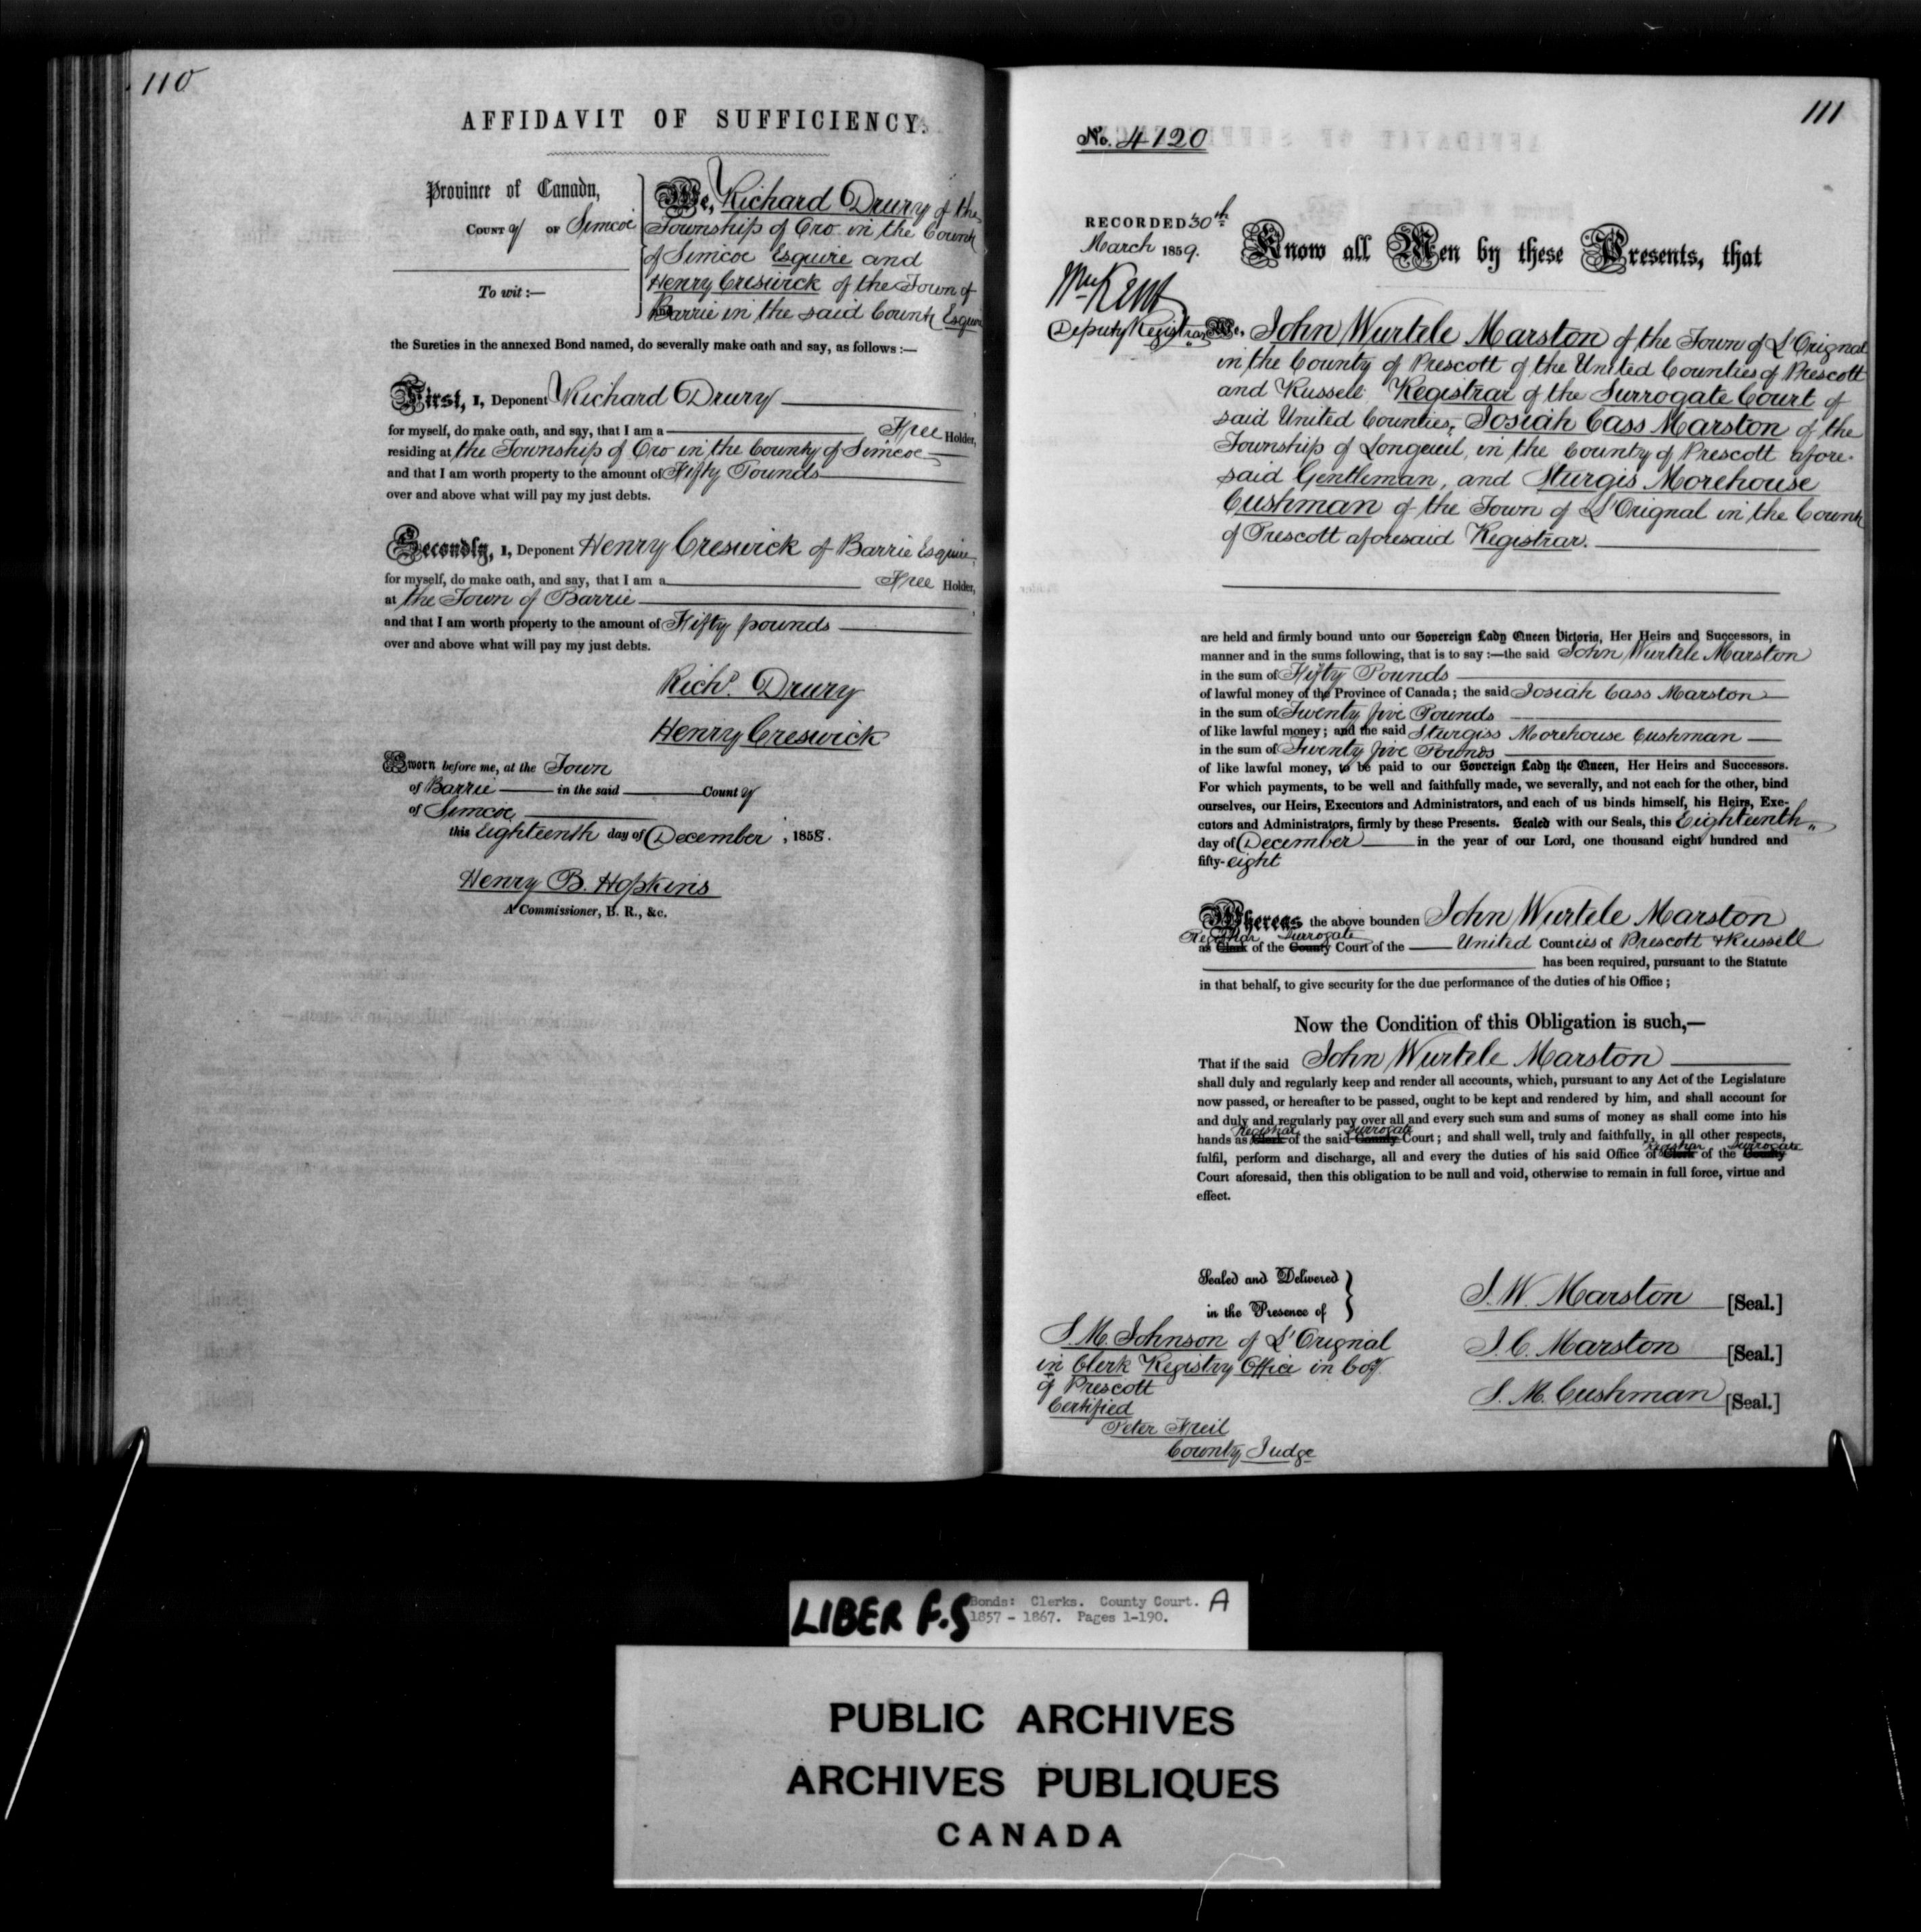 110
AFFIDAVIT OF SUFFICIENCY.
Province of Canada,
COUNTy OF Simcoe
To wit:—
We, Richard Drury of the
Township of Oro in the County
of Simcoe Esquire and
Henry Creswick of the Town of
Barrie in the said County Esquire
the Sureties in the annexed Bond named, do severally make oath and say, as follows:—
First, I, Deponent Richard Drury
for myself, do make oath, and say, that I am a Free Holder,
residing at the Township of Oro in the County of Simcoe
and that I am worth property to the amount of Fifty Pounds
over and above what will pay my just debts.
Secondly, I, Deponent Henry Creswick of Barrie Esquire
for myself, do make oath, and say, that I am a Free Holder,
at the Town of Barrie
and that I am worth property to the amount of Fifty pounds
over and above what will pay my just debts.
Richd. Drury
Henry Creswick
Sworn before me, at the Town
of Barrie in the said County
of Simcoe
this Eighteenth day of December, 1858.
Henry B. Hopkins
A Commissioner, B. R., &c.
111
No. 4120
RECORDED 30th
March 1859.
Wm Kent
Deputy Registrar
Know all Men by these Presents, that
We, John Wurtele Marston of the Town of L'Orignal
in the County of Prescott of the United Counties of Prescott
and Russell Registrar of the Surrogate Court of
said United Counties, Josiah Cass Marston of the
Township of Longueil, in the County of Prescott afore-
said Gentleman, and Sturgis Morehouse
Cushman of the Town of L'Orignal in the County
of Prescott aforesaid Registrar.
are held and firmly bound unto our Sovereign Lady Queen Victoria, Her Heirs and Successors, in
manner and in the sums following, that is to say:—the said John Wurtele Marston
in the sum of Fifty Pounds
of lawful money of the Province of Canada; the said Josiah Cass Marston
in the sum of Twenty five Pounds
of like lawful money; and the said Sturgiss Morehouse Cushman
in the sum of Twenty five Pounds
of like lawful money, to be paid to our Sovereign Lady the Queen, Her Heirs and Successors.
For which payments, to be well and faithfully made, we severally, and not each for the other, bind
ourselves, our Heirs, Executors and Administrators, and each of us binds himself, his Heirs, Exe-
cutors and Administrators, firmly by these Presents. Sealed with our Seals, this Eighteenth
day of December in the year of our Lord, one thousand eight hundred and
fifty-eight
Whereas the above bounden John Wurtele Marston
Registrar Surrogate
as Clerk of the County Court of the United Counties of Prescott & Russell
has been required, pursuant to the Statute
in that behalf, to give security for the due performance of the duties of his Office;
Now the Condition of this Obligation is such,—
That if the said John Wurtele Marston
shall duly and regularly keep and render all accounts, which, pursuant to any Act of the Legislature
now passed, or hereafter to be passed, ought to be kept and rendered by him, and shall account for
and duly and regularly pay over all and every such sum and sums of money as shall come into his
Registrar Surrogate
hands as Clerk of the said County Court; and shall well, truly and faithfully, in all other respects,
Registrar Surrogate
fulfil, perform and discharge, all and every the duties of his said Office of Clerk of the County
Court aforesaid, then this obligation to be null and void, otherwise to remain in full force, virtue and
effect.
Sealed and Delivered
in the Presence of
J. M. Johnson of L'Orignal
in Clerk Registry Office in Coy
of Prescott
Certified
Peter Freil
County Judge
J. W. Marston [Seal.]
J. C. Marston [Seal.]
S. M. Cushman [Seal.]
LIBER F.S
Bonds: Clerks. County Court. A
1857 - 1867. Pages 1-190.
PUBLIC ARCHIVES
ARCHIVES PUBLIQUES
CANADA